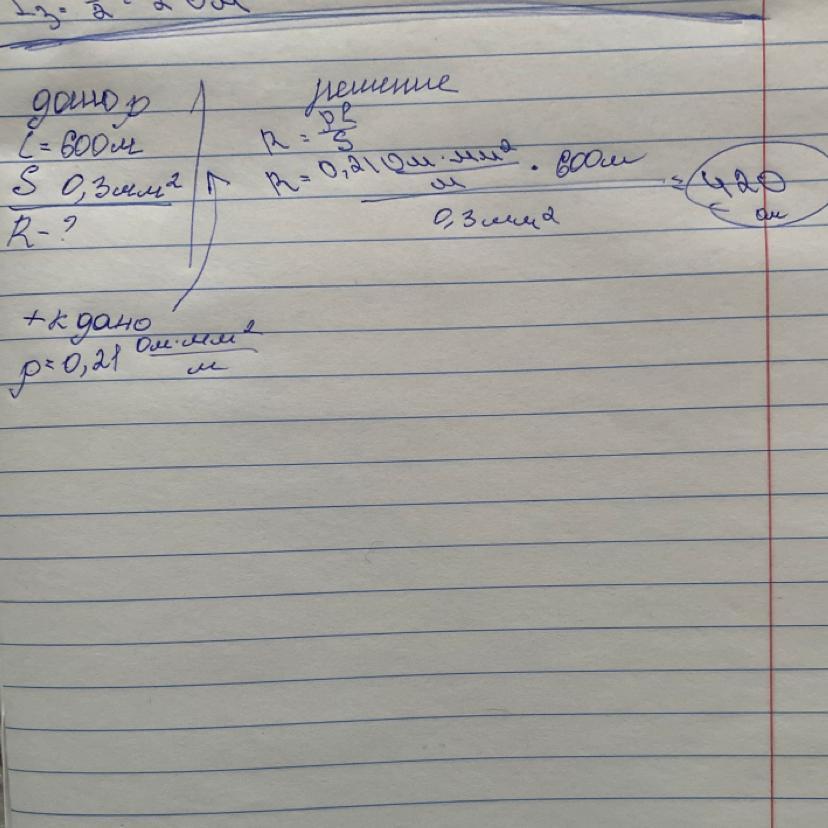 дано ρ
l = 600м
S 0,3мм²
R - ?
решение
R = ρl/S
R = 0,21 Ом·мм²/м · 600м / 0,3мм² = 420 Ом
+ к дано
ρ = 0,21 Ом·мм²/м